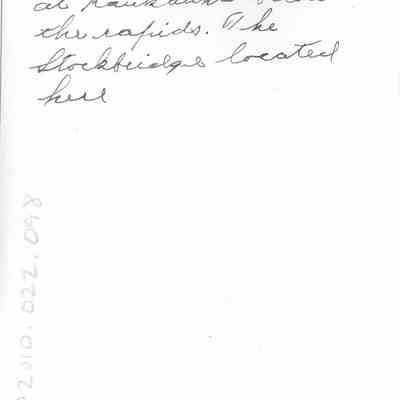 at Kaukauna
the rapids. The
Stockbridges located
here
P2010.022.098